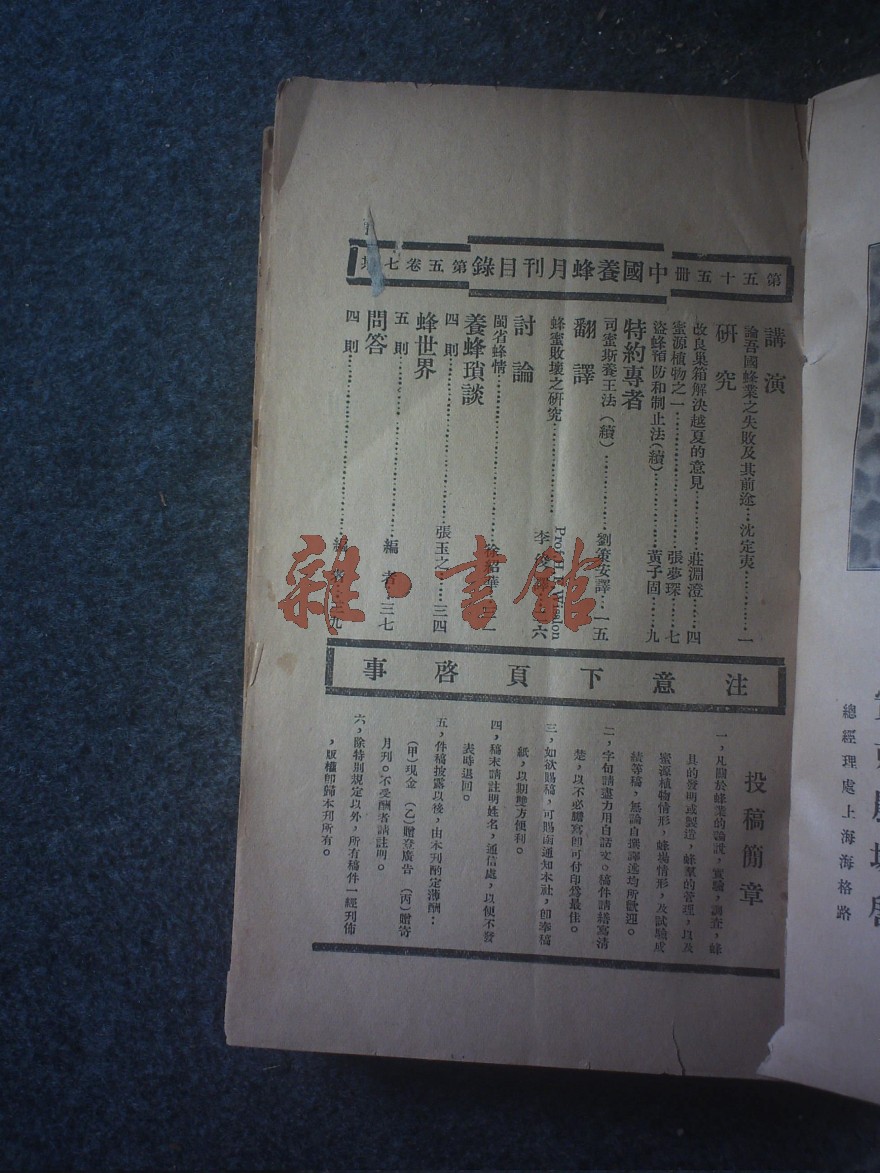 第五十五冊
中國養蜂月刊目錄
第五卷七
講演
論吾國蜂業之失敗及其前途…沈定夷…一
研究
改良巢箱解決越夏的意見…莊淵澄…四
蜜源植物之一…張夢琛…七
盜蜂預防和制止法(續)…黃子固…九
特約專著
司蜜斯養王法(續)…劉箸安譯…一五
翻譯
蜂蜜敗壞之研究…
李
六
討論
閩省蜂情…徐紹華
養蜂瑣談
四則…張玉之…三四
蜂世界
五則…編者…三七
問答
四則…編者
九
注意下頁啓事
投稿簡章
一,凡關於蜂業的論說,實驗,調查,蜂
具的發明或製造,蜂羣的管理,以及
蜜源植物情形,蜂場情形,及試驗成
績等稿,無論自撰譯述均所歡迎。
二,字句請盡力用白話文。稿件請繕寫清
楚,以不必謄寫卽可付印爲最佳。
三,如欲賜稿,可賜函通知本社,卽奉稿
紙,以期雙方便利。
四,稿末請註明姓名,通信處,以便不發
表時退回。
五,件稿披露以後,由本刊酌定薄酬:
(甲)現金 (乙)贈登廣告 (丙)贈寄
月刊。不受酬者請註明。
六,除特別規定以外,所有稿件一經刊佈
,版權卽歸本刊所有。
總經理處上海海格路
雜·書館